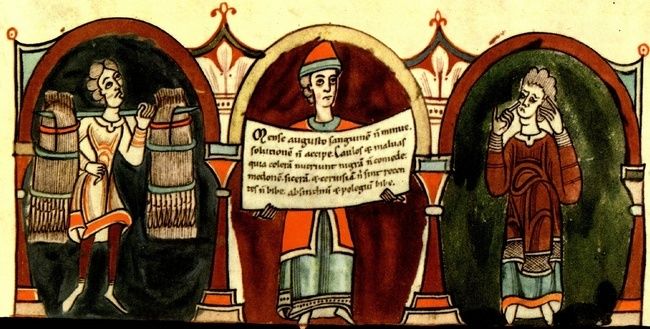 Mense augusto sanguinē n̄ minue.
solutionē n̄ accipe. Caulos & maluas
quia colerā nutriunt nigrā n̄ comede.
medonē. sicerā & ceruisā n̄ sint recen
tes n̄ bibe. absinthiū & polegiū bibe.